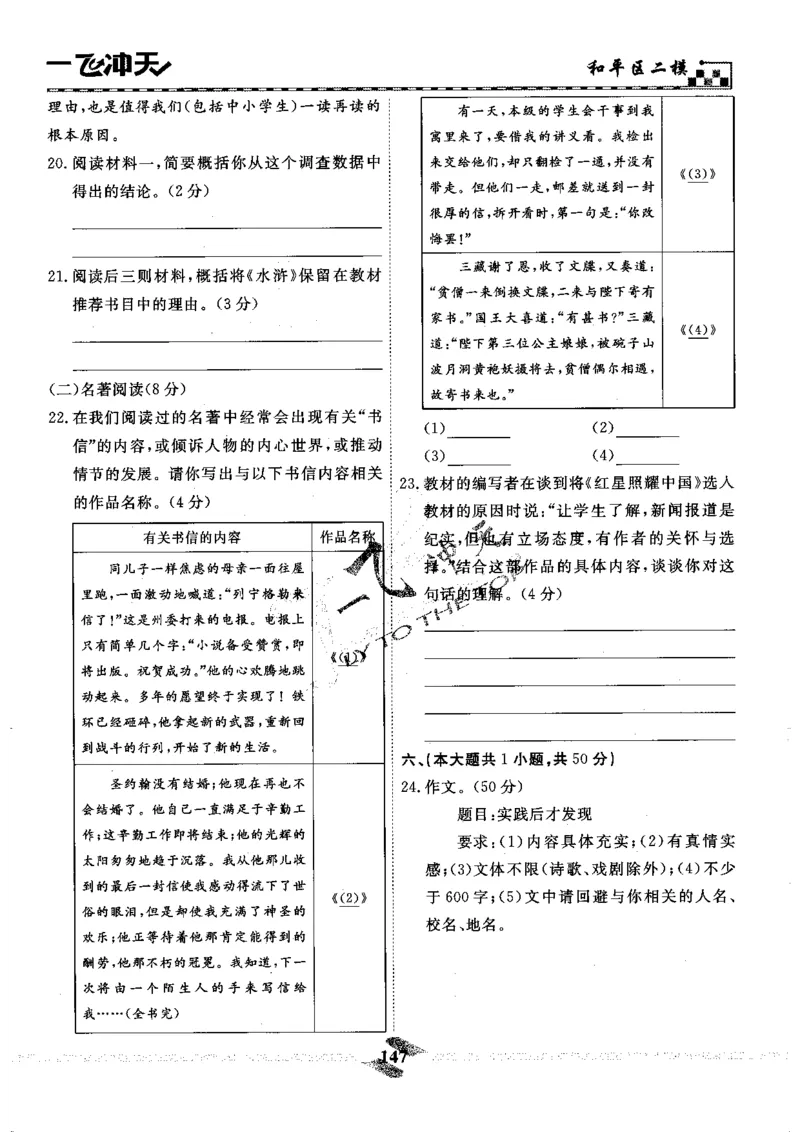 一飞冲天
和平区二模
理由,也是值得我们(包括中小学生)一读再读的
根本原因。
20.阅读材料一,简要概括你从这个调查数据中
得出的结论。(2分)
21.阅读后三则材料,概括将《水浒》保留在教材
推荐书目中的理由。(3分)
(二)名著阅读(8分)
22.在我们阅读过的名著中经常会出现有关“书
信”的内容,或倾诉人物的内心世界,或推动
情节的发展。请你写出与以下书信内容相关
的作品名称。(4分)
有关书信的内容 作品名称
同儿子一样焦虑的母亲一面往屋
里跑,一面激动地喊道:“列宁格勒来
信了!”这是州委打来的电报。电报上
只有简单几个字:“小说备受赞赏,即
将出版。祝贺成功。”他的心欢腾地跳
动起来。多年的愿望终于实现了!铁
环已经砸碎,他拿起新的武器,重新回
到战斗的行列,开始了新的生活。
《(1)》
圣约翰没有结婚;他现在再也不
会结婚了。他自己一直满足于辛勤工
作;这辛勤工作即将结束;他的光辉的
太阳匆匆地趋于沉落。我从他那儿收
到的最后一封信使我感动得流下了世
俗的眼泪,但是却使我充满了神圣的
欢乐;他正等待着他那肯定能得到的
酬劳,他那不朽的冠冕。我知道,下一
次将由一个陌生人的手来写信给
我……(全书完)
《(2)》
有一天,本级的学生会干事到我
寓里来了,要借我的讲义看。我检出
来交给他们,却只翻检了一通,并没有
带走。但他们一走,邮差就送到一封
很厚的信,拆开看时,第一句是:“你改
悔罢!”
《(3)》
三藏谢了恩,收了文牒,又奏道:
“贫僧一来倒换文牒,二来与陛下寄有
家书。”国王大喜道:“有甚书?”三藏
道:“陛下第三位公主娘娘,被碗子山
波月洞黄袍妖摄将去,贫僧偶尔相遇,
故寄书来也。”
《(4)》
(1) (2)
(3) (4)
23.教材的编写者在谈到将《红星照耀中国》选入
教材的原因时说:“让学生了解,新闻报道是
纪实,但也有立场态度,有作者的关怀与选
择。”结合这部作品的具体内容,谈谈你对这
句话的理解。(4分)
六、(本大题共1小题,共50分)
24.作文。(50分)
题目:实践后才发现
要求:(1)内容具体充实;(2)有真情实
感;(3)文体不限(诗歌、戏剧除外);(4)不少
于600字;(5)文中请回避与你相关的人名、
校名、地名。
147